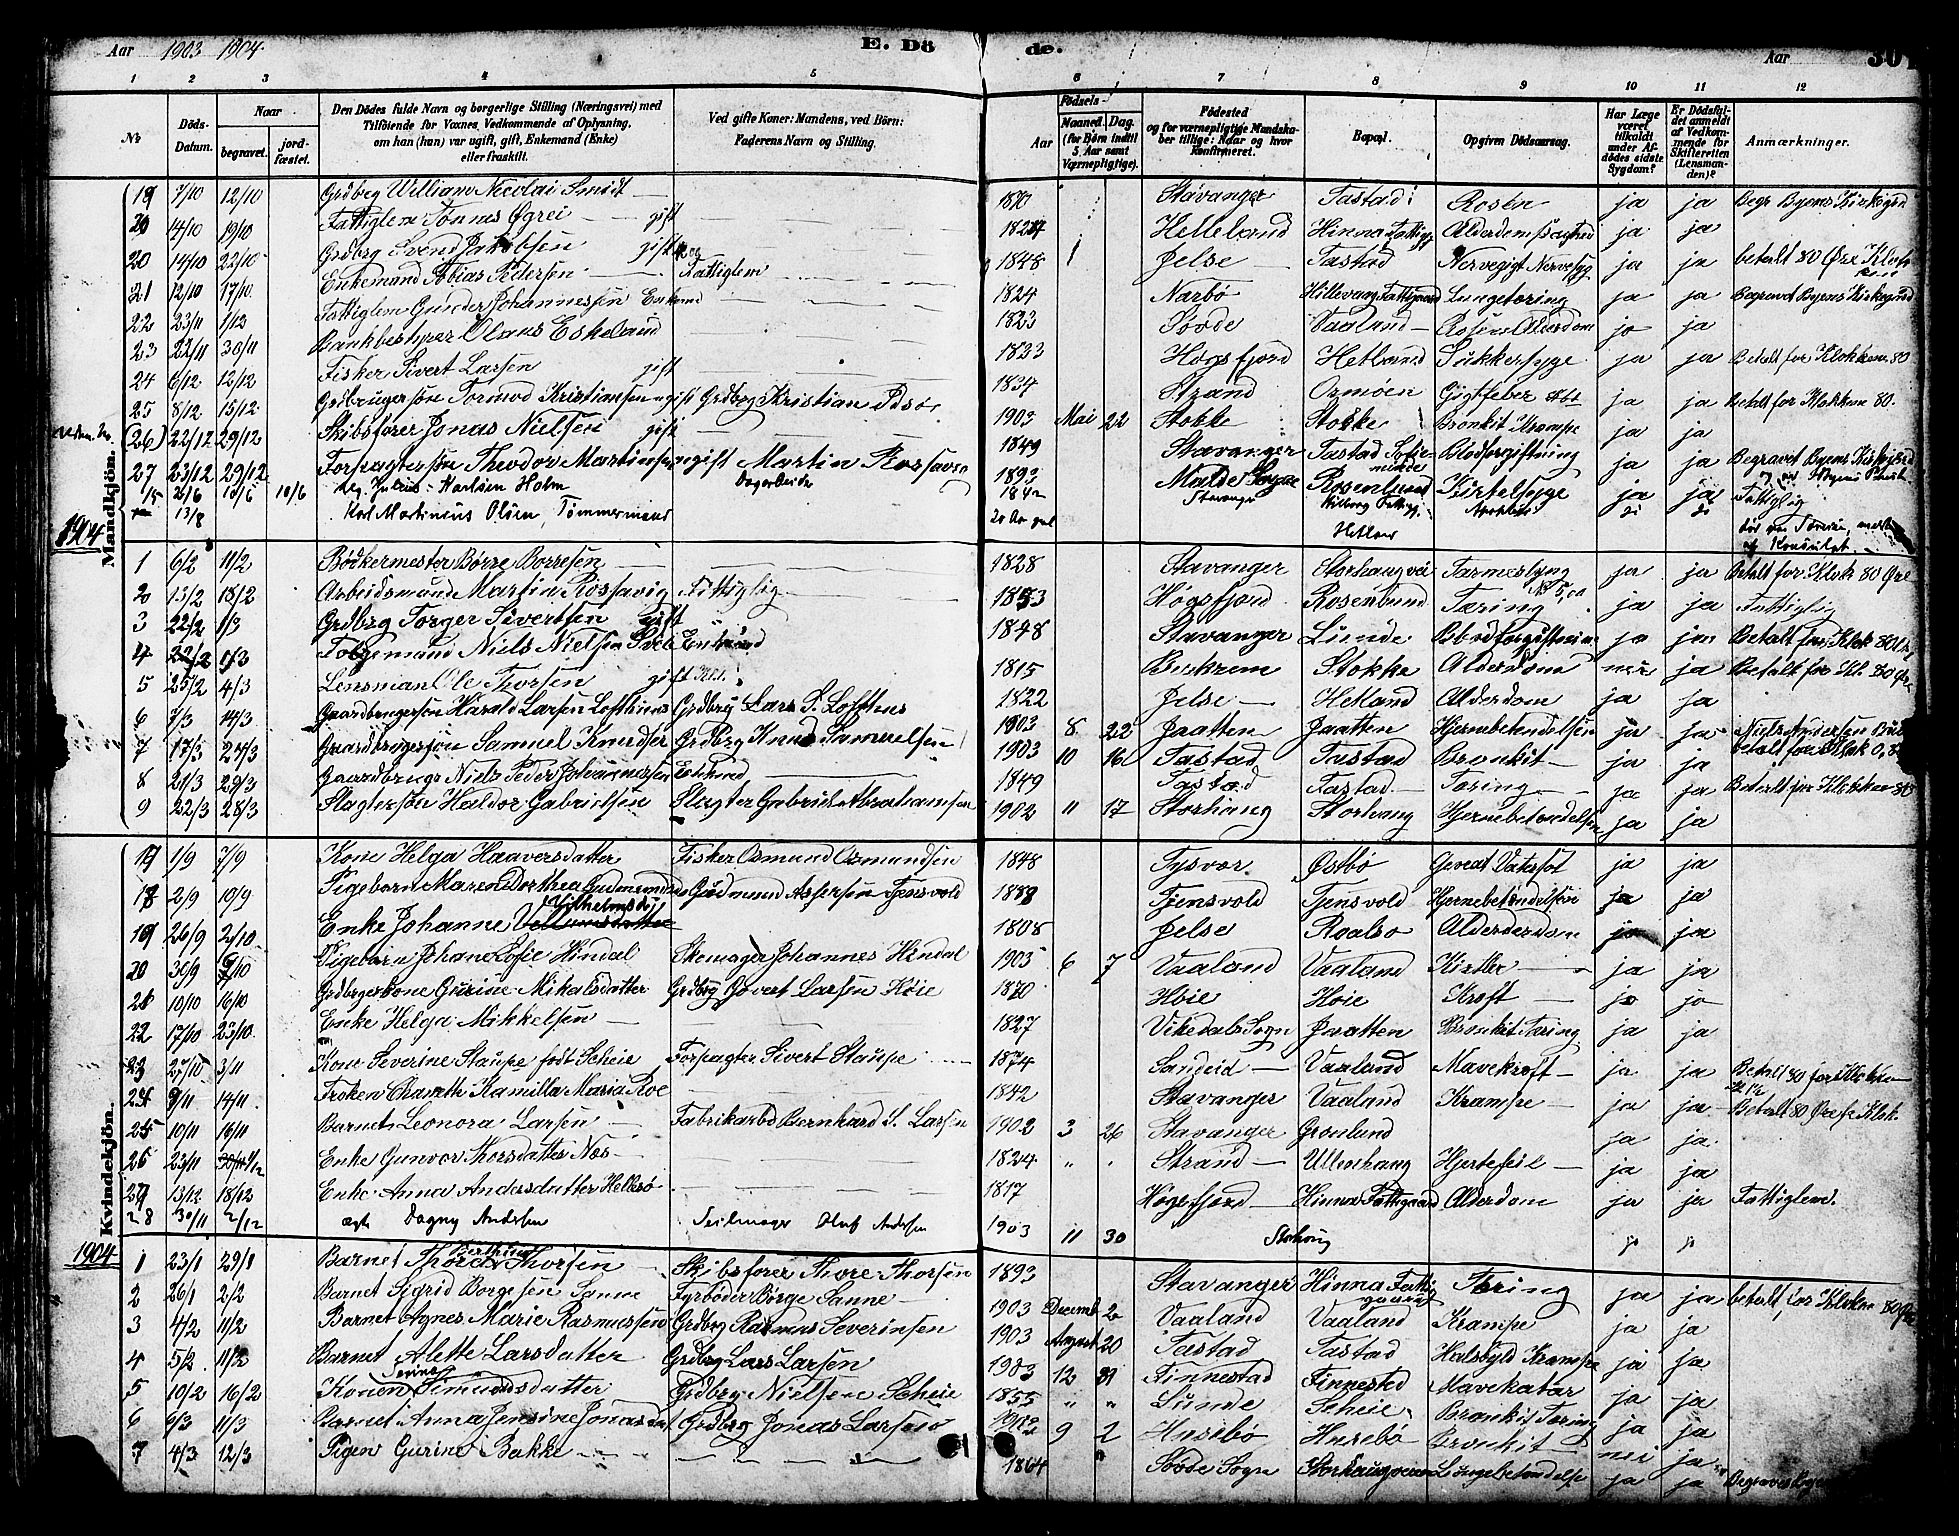 Aar 1903 1904. E. Dö de. Aar 301
1 2 3 4 5 6 7 8 9 10 11 12
№ Döds-Datum. Naar begravet. jord-fæstet. Den Dödes fulde Navn og borgerlige Stilling (Næringsvei) med Tilföiende for Voxnes Vedkommende af Oplysning, om han (hun) var ugift, gift, Enkemand (Enke) eller fraskilt. Ved gifte Koner: Mandens, ved Börn: Faderens Navn og Stilling. Födsels- Aar Maaned. Dag. (for Börn indtil 5 Aar samt Værnepligtige). Födested og for værnepligtige Mandskaber tillige: Naar og hvor Konfirmeret. Bopæl. Opgiven Dödsaarsag. Har Læge været tilkaldt under Afdödes sidste Sygdom? Er Dödsfaldet anmeldt af Vedkommende for Skifteretten (Lensmanden)? Anmærkninger.
Mandkjön.
19 7/10 12/10 Grdbrg William Nicolai Smidt — 1870 Stavanger Tastad Rosen ja ja Begr Byens Kirkegrd
20 14/10 19/10 Fattiglem Tönnes Ogrei — gift 1824 Helleland Hinna Fattigg Alderdomssvaghed ja ja
20 14/10 22/10 Grdbrg Svend Jakobsen gift 1848 Jelse Tastad Nervegigt Nervesyg ja ja betalt 80 Øre Klok
21 12/10 17/10 Enkemand Tobias Pedersen — Fattiglem 1824 Nærbö Hillevaag Fattiggaard Lungetæring ja ja Begravet Byens Kirkegaard
22 23/11 1/12 Fattiglem Gunder Johannessen Enkemd 1823 Sövde Vaaland — Rosen Alderdom ja ja
23 22/11 30/11 Bankbestyrer Olaus Eskeland 1833 Hogsfjord Hetland Sukkersyge ja ja Betalt for Klokken 80
24 6/12 12/12 Fisker Sivert Larsen gift 1834 Strand Ormöen Gigtfeber ja ja Betalt for Klokken 80.
25 8/12 15/12 Grdbrugersön Tormod Kristiansen ugift Grdbrg Kristian 1903 Mai 22 Stokke Stokke Bronkit Krampe ja ja
(26) 22/12 29/12 Skibsförer Jonas Nielsen gift 1849 Stavanger Tastad Blodforgiftning ja ja Begravet Byens Kirkegård
27 23/12 29/12 Forpagtersön Theodor Martinsen ugift Martin Rossavig Dagarbeider 1893 Malde Sogn Rosenlund Kirtelsyge ja ja
26/6 10/6 Julius Karlsen Holm 1842 Stavanger Hillevg Fattigg. Apopleksi ja ja Fattiglig
13/8 Karl Martinius Olsen, Tömmermand 20 Aar gml Hetland
1904
1 6/2 11/2 Bödkermester Börre Borresen — 1828 Stavanger Storhaugvei Tarmeslyng ja ja Betalt for Klok 80 Øre
2 13/2 18/2 Arbeidsmand Martin Rossavig Fattiglig 1853 Högsfjord Rosenlund Tæring ja ja Fattiglig
3 22/2 1/3 Grdbrg Torger Sivertsen gift 1848 Stavanger Lunde Blodforgiftning ja ja Betalt for Klok 80 Ør
4 22/2 1/3 Folgemand Niels Nielsen Enkemand 1815 Birkrem Stokke Alderdom nei ja Betalt for Kl. 80 Øre
5 25/2 4/3 Lensman Ole Thorsen gift 1822 Jelse — Hetland Alderdom ja ja
6 7/3 14/3 Gaardbrugersön Harald Larsen Lofthuus Grdbrg Lars S. Lofthus 1903 8 22 Jaatten Jaatten Hjernebetendelsen ja ja
7 17/3 24/3 Gaardbrugersön Samuel Knudsen Grdbrg Knud Samuelsen 1903 10 16 Tastad Tastad Bronkit ja ja betalt for Klok
8 21/3 29/3 Gaardbruger Niels Peder Johannessen Enkemd 1849 Tastad Tastad Tæring ja ja Betalt for Klokken 80
9 22/3 28/3 Slagtersön Haldor Gabrielsen Slagter Gabriel Abrahamsen 1902 11 17 Storhaug Storhaug Hjernebetændelse ja ja
Kvindekjön.
17 1/9 7/9 Kone Helga Haaversdatter Fisker Osmund Osmundsen 1848 Tysvær Østbö ja ja
18 2/9 10/9 Pigebarn Maren Dorthea Gudmundsen Gudmund Assersen Tjensvold 1889 Tjensvold Tjensvold Hjernebetændelsen ja ja
19 26/9 2/10 Enke Johanne Vilhelmsdtr 1808 Jelse Roalsö Alderdom ja ja
20 30/9 6/10 Pigebarn Johane Sofie Hindal Skomager Johannes Hindal 1903 6 7 Vaaland Vaaland Kirtler ja ja
21 10/10 16/10 Grdbrgerkone Gurine Mikalsdatter Grdbrg Govert Larsen Höie 1870 Höie Höie Kræft ja ja
22 17/10 23/10 Enke Helga Mikkelsen 1827 Vikedals Sogn Jaatten Bronkit Tæring ja ja
23 27/10 3/11 Kone Severine Staupe födt Scheie Forpagter Sivert Staupe 1874 Sandeid Vaaland Mavekræft ja ja Betalt 80 for Klokken
24 9/11 14/11 Fröken Kamilla Maria Roe 1842 Stavanger Vaaland Krampe ja ja Betalt 80 Øre f Klok.
25 10/11 16/11 Barnet Leonora Larsen Fabrikarbd Bernhard S. Larsen 1902 3 26 Stavanger Grönlund ja ja
26 23/11 1/12 Enke Gunvor Thorsdatter Næs 1824 Strand Ullenhaug Hjertefeil ja ja
27 13/12 18/12 Enke Anna Andersdatter Hellesö 1817 Högsfjord Hinna Fattiggaard Alderdom ja ja Fattiglemd.
28 30/11 2/12 ægte Dagny Andersen Seilmager Oluf Andersen 1903 11 30 Storhaug ja ja
1904
1 23/1 29/1 Barnet Berthine Thorsen Skibsförer Thore Thorsen 1893 Stavanger Hinna Fattiggaard Tæring ja ja betalt for Klokken 80 Øre
2 26/1 2/2 Barnet Sigrid Borgesen Sanne Fyrböder Börge Sanne 1903 Decemb 2 Vaaland Vaaland Krampe ja ja
3 4/2 11/2 Barnet Agnes Marie Rasmussen Grdbrg Rasmus Severinsen 1903 August 20 Tastad Tastad Halsbyld Krampe ja ja
4 5/2 11/2 Barnet Alette Larsdatter Grdbrg Lars Larsen 1903 12 Finnestad Finnested Mavekatar ja ja
5 10/2 16/2 Konen Simundsdatter Grdbrg Nielsen Scheie 1855 Lunde Scheie Bronkit Tæring ja ja
6 9/3 11/3 Barnet Anna Jensine Jonasdtr Grdbrg Jonas Larsen 9 2 Husebö Husebö Bronkit nei ja
7 4/3 12/3 Pigen Gurine Bakke 1864 Sövde Sogn Storhaugveien Lungebetændelse ja ja Begravet